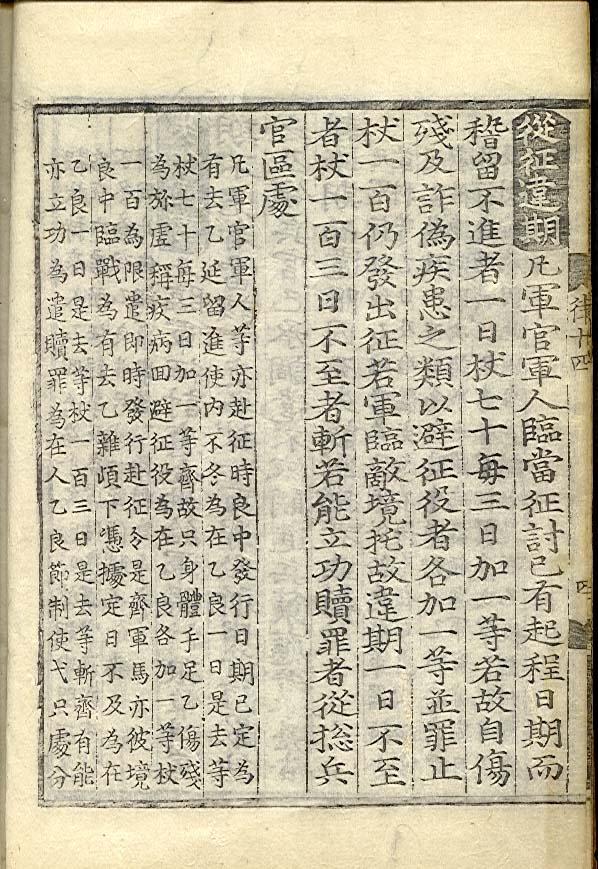 從征違期 凡軍官軍人臨當征討已有起程日期而
稽留不進者一日杖七十每三日加一等若故自傷
殘及詐偽疾患之類以避征役者各加一等並罪止
杖一百仍發出征若軍臨敵境托故違期一日不至
者杖一百三日不至者斬若能立功贖罪者從摠兵
官區處
凡軍官軍人等亦赴征時良中發行日期已定為
有去乙延留進使內不冬為在乙良一日是去等
杖七十每三日加一等齊故只身體手足乙傷殘
為旀虛稱疾病回避征役為在乙良各加一等杖
一百為限遣即時發行赴征令是齊軍馬亦彼境
良中臨戰為有去乙雜頉下憑據定日不及為在
乙良一日是去等杖一百三日是去等斬齊有能
亦立功為遣贖罪為在人乙良節制使弋只處分